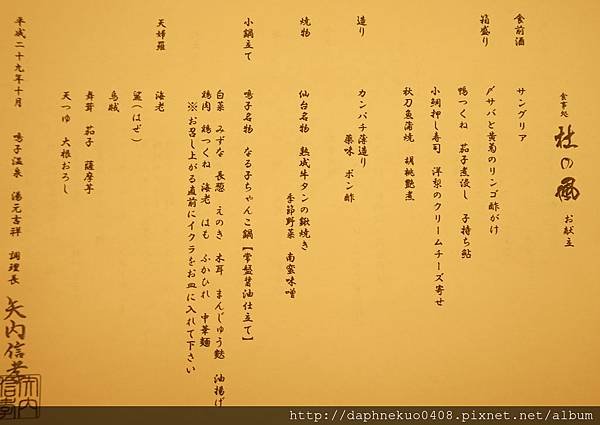 食事処 杜の風 お献立
食前酒 サングリア
箱盛り 〆サバと黄菊のリンゴ酢がけ
鴨つくね 茄子煮浸し 子持ち鮎
小鯛押し寿司 洋梨のクリームチーズ寄せ
秋刀魚蒲焼 胡桃艶煮
造り カンパチ薄造り
薬味 ポン酢
焼物 仙台名物 熟成牛タンの鍬焼き
季節野菜 南蛮味噌
小鍋立て 鳴子名物 なる子ちゃんこ鍋【常盤醤油仕立て】
白菜 みずな 長葱 えのき 木耳 まんじゅう麩 油揚げ
鶏肉 鶏つくね 海老 はも ふかひれ 中華麺
※お召し上がる直前にイクラをお皿に入れて下さい
天婦羅 海老
鯊(はぜ)
烏賊
舞茸 茄子 薩摩芋
天つゆ 大根おろし
平成二十九年十月 鳴子温泉 湯元吉祥 調理長 矢内信孝
http://daphnekuo0408.pixnet.net/album